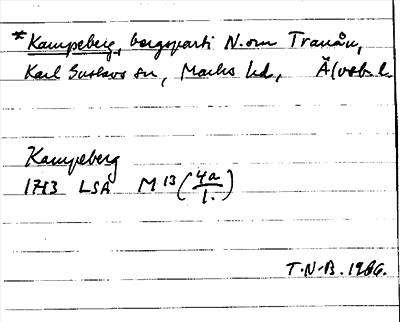 *Kampeberg, bergsparti N. om Tranån,
Karl Gustavs sn, Marks hd, Älvsb. l.
Kampeberg
1713 LSA M 13 (4a/1.)
T.N-B. 1986.